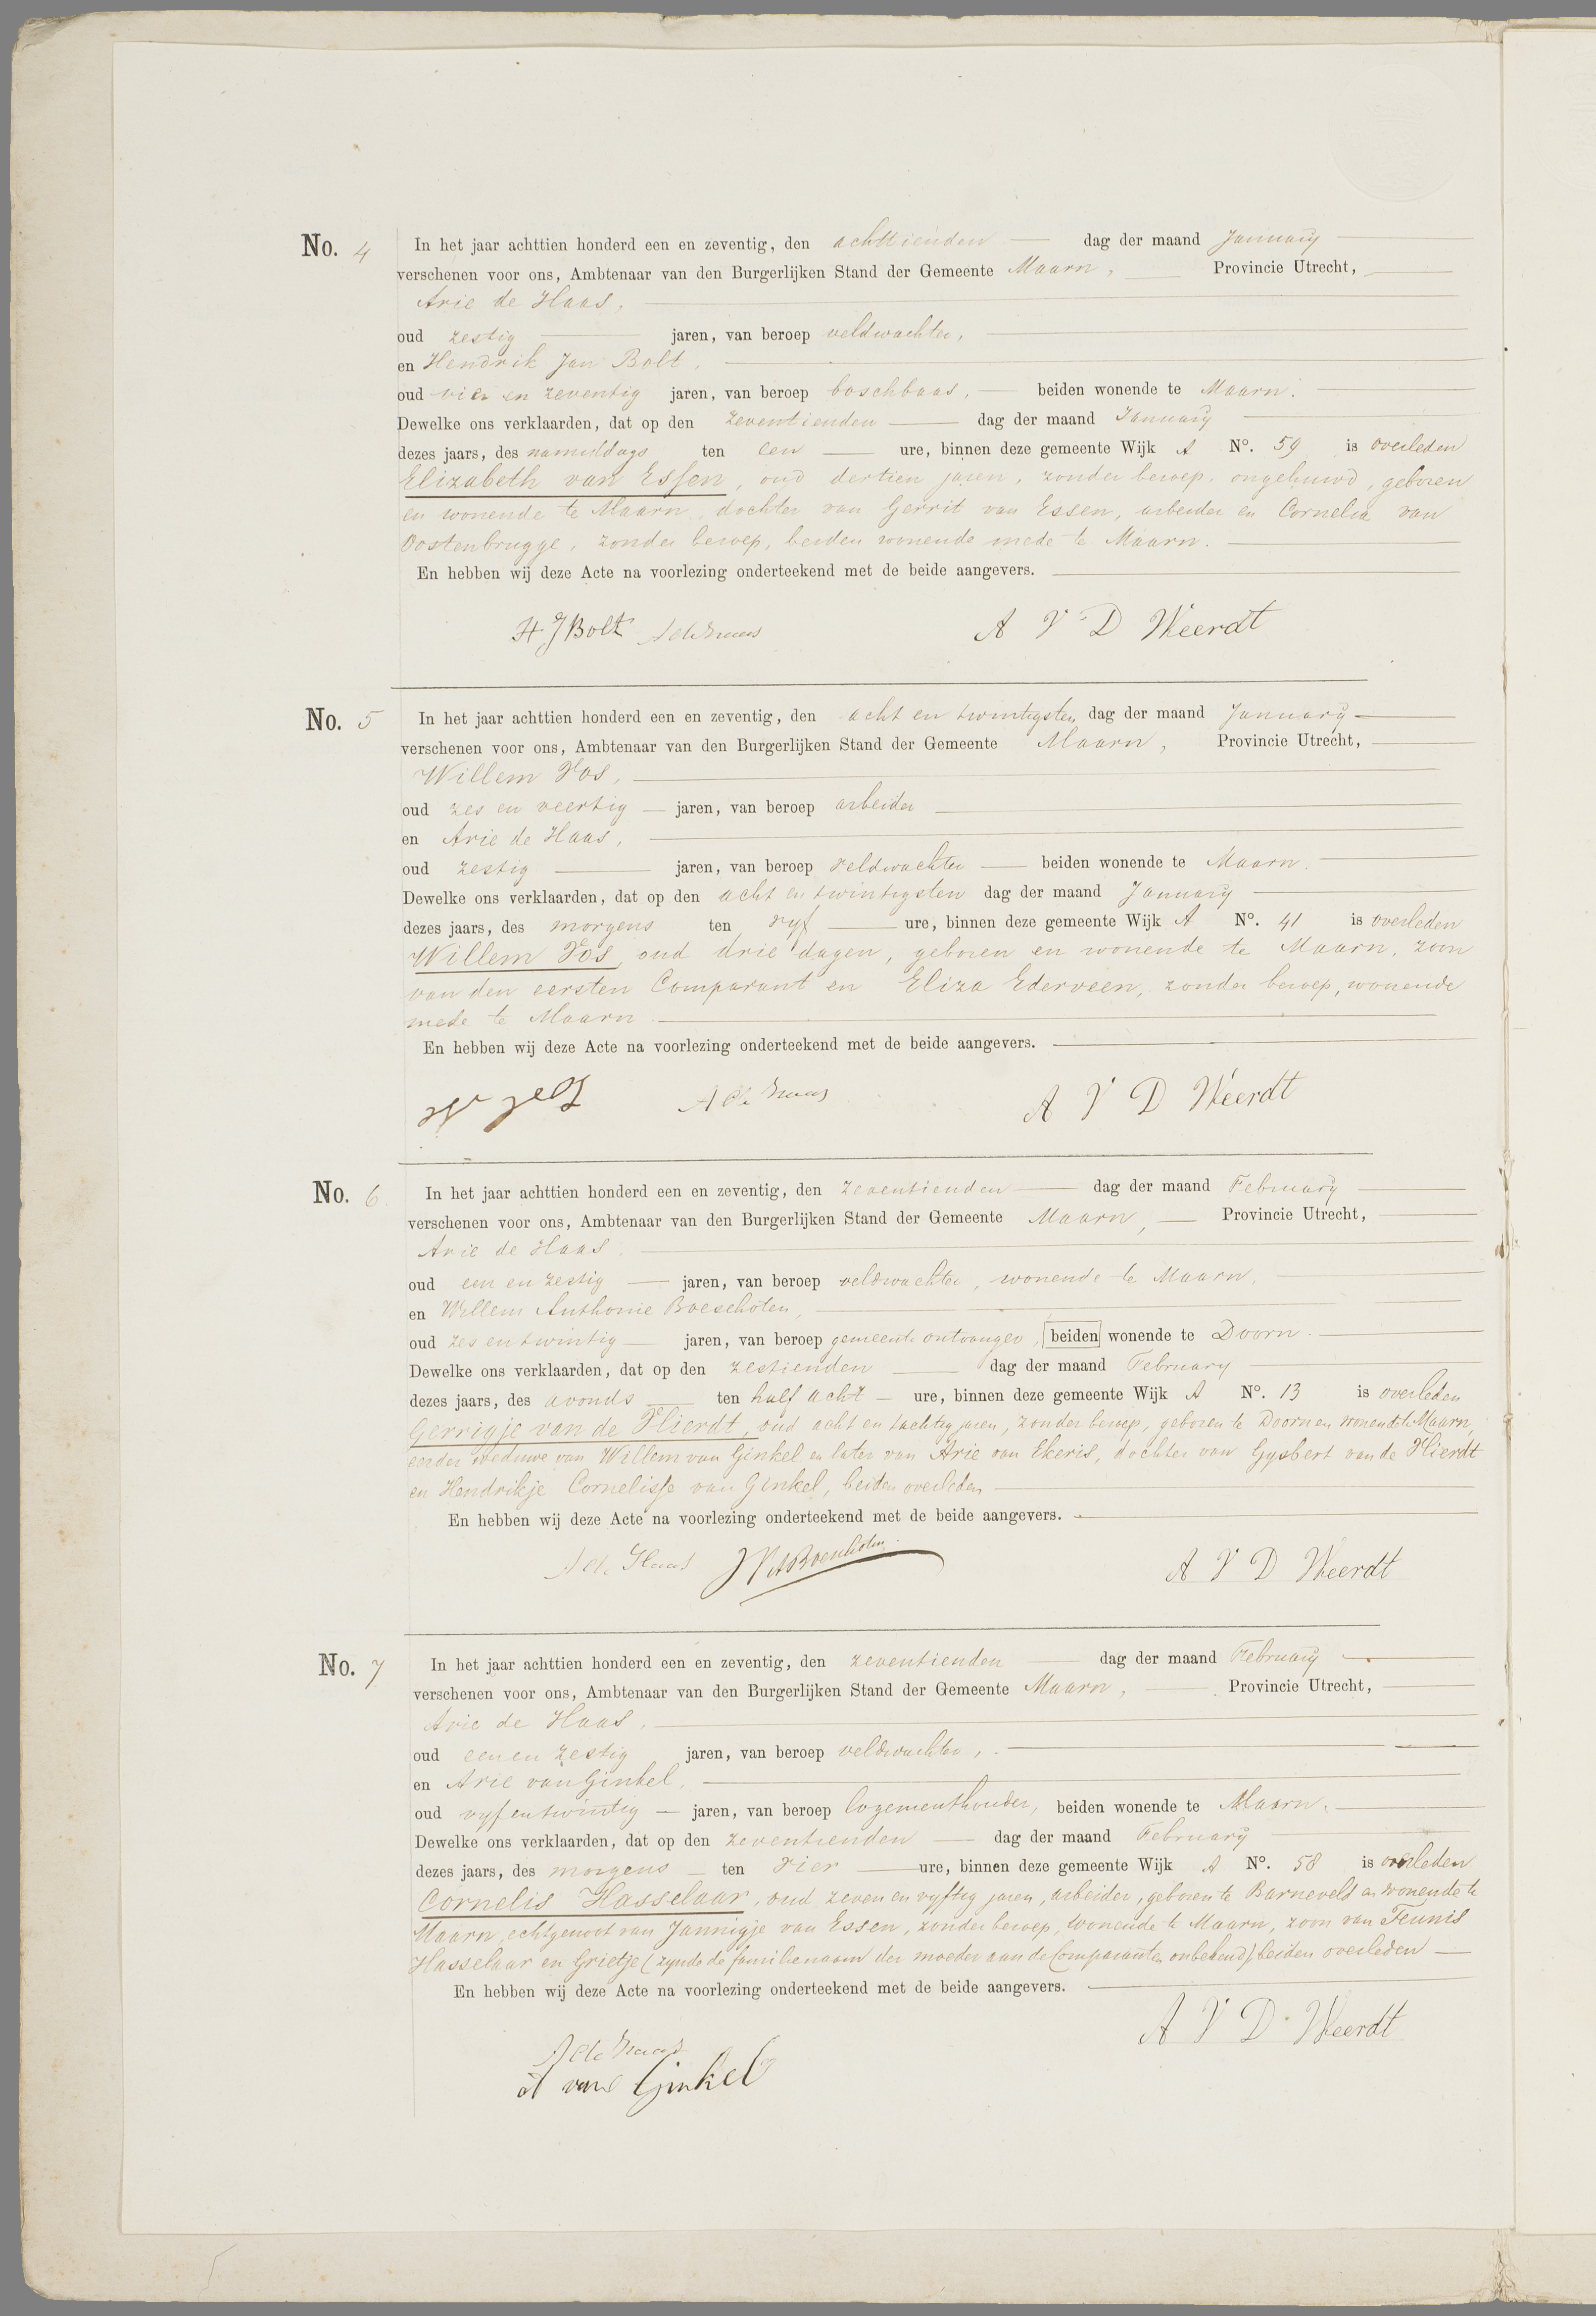 No. 4 In het jaar achttien honderd een en zeventig, den achttienden dag der maand January
verschenen voor ons, Ambtenaar van den Burgerlijken Stand der Gemeente Maarn, Provincie Utrecht,
Arie de Haas,
oud zestig jaren, van beroep veldwachter,
en Hendrik Jan Bolt,
oud vier en zeventig jaren, van beroep boschbaas, beiden wonende te Maarn.
Dewelke ons verklaarden, dat op den zeventienden dag der maand January
dezes jaars, des namiddags ten een ure, binnen deze gemeente Wijk A No. 59 is overleden
Elizabeth van Essen, oud dertien jaren, zonder beroep, ongehuwd, geboren
en wonende te Maarn, dochter van Gerrit van Essen, arbeider en Cornelia van
Oostenbrugge, zonder beroep, beiden wonende mede te Maarn.
En hebben wij deze Acte na voorlezing onderteekend met de beide aangevers.
H J Bolt A de Haas A V D Weerdt
No. 5 In het jaar achttien honderd een en zeventig, den acht en twintigsten dag der maand January
verschenen voor ons, Ambtenaar van den Burgerlijken Stand der Gemeente Maarn, Provincie Utrecht,
Willem Vos,
oud zes en veertig jaren, van beroep arbeider
en Arie de Haas,
oud zestig jaren, van beroep veldwachter beiden wonende te Maarn.
Dewelke ons verklaarden, dat op den acht en twintigsten dag der maand January
dezes jaars, des morgens ten vyf ure, binnen deze gemeente Wijk A No. 41 is overleden
Willem Vos, oud drie dagen, geboren en wonende te Maarn, zoon
van den eersten Comparant en Eliza Ederveen, zonder beroep, wonende
mede te Maarn.
En hebben wij deze Acte na voorlezing onderteekend met de beide aangevers.
A de Haas A V D Weerdt
No. 6 In het jaar achttien honderd een en zeventig, den zeventienden dag der maand February
verschenen voor ons, Ambtenaar van den Burgerlijken Stand der Gemeente Maarn, Provincie Utrecht,
Arie de Haas,
oud een en zestig jaren, van beroep veldwachter, wonende te Maarn,
en Willem Anthonie Boeschoten,
oud zes en twintig jaren, van beroep gemeente ontvanger, beiden wonende te Doorn.
Dewelke ons verklaarden, dat op den zestienden dag der maand February
dezes jaars, des avonds ten half acht ure, binnen deze gemeente Wijk A No. 13 is overleden
Gerrigje van de Vlierdt, oud acht en tachtig jaren, zonder beroep, geboren te Doorn en wonende te Maarn,
eerder weduwe van Willem van Ginkel en later van Arie van Ekeris, dochter van Gysbert van de Vlierdt
en Hendrikje Cornelisse van Ginkel, beiden overleden
En hebben wij deze Acte na voorlezing onderteekend met de beide aangevers.
A de Haas W A Boeschoten A V D Weerdt
No. 7 In het jaar achttien honderd een en zeventig, den zeventienden dag der maand February
verschenen voor ons, Ambtenaar van den Burgerlijken Stand der Gemeente Maarn, Provincie Utrecht,
Arie de Haas,
oud een en zestig jaren, van beroep veldwachter,
en Arie van Ginkel,
oud vyf en twintig jaren, van beroep logementhouder, beiden wonende te Maarn.
Dewelke ons verklaarden, dat op den zeventienden dag der maand February
dezes jaars, des morgens ten vier ure, binnen deze gemeente Wijk A No. 58 is overleden
Cornelis Hasselaar, oud zeven en vyftig jaren, arbeider, geboren te Barneveld en wonende te
Maarn, echtgenoot van Jannigje van Essen, zonder beroep, wonende te Maarn, zoon van Teunis
Hasselaar en Grietje (zynde de familienaam der moeder aan de Comparanten onbekend), beiden overleden
En hebben wij deze Acte na voorlezing onderteekend met de beide aangevers.
A V D Weerdt
A de Haas
A van Ginkel